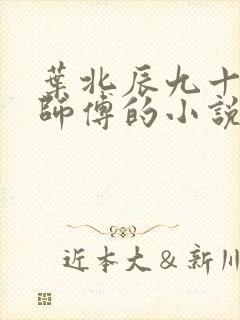 葉北辰九十
師傅的小說
近本大＆新川